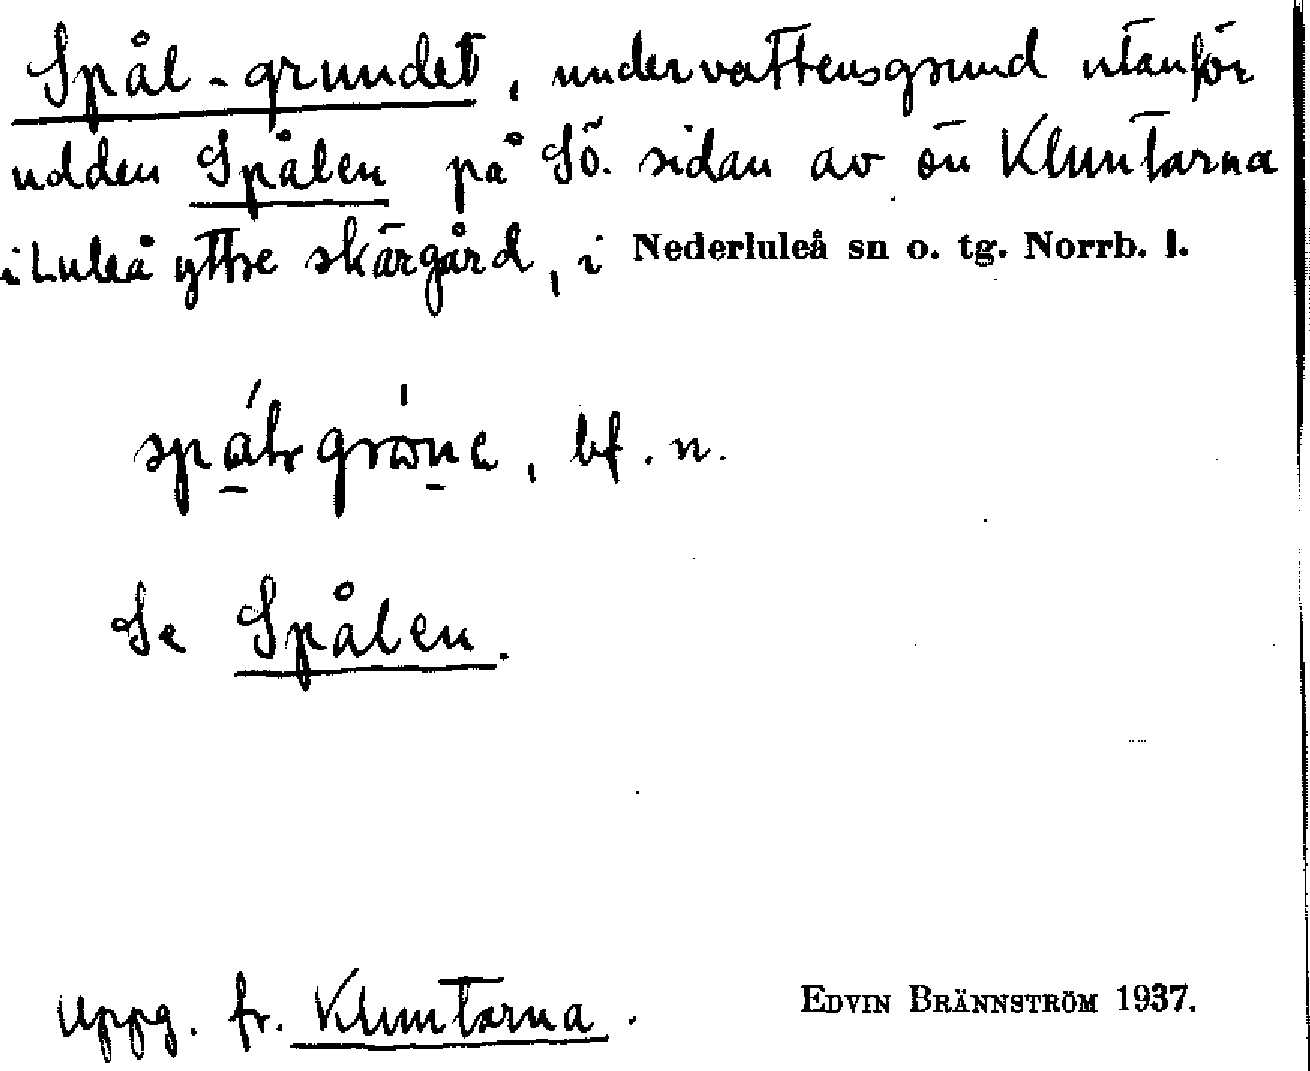 Spål-grundet, undervattensgrund utanför
udden Spålen på Sö. sidan av ön Kluntarna
i Luleå yttre skärgård, i Nederluleå sn o. tg. Norrb. l.
bf. n.
Se Spålen.
Uppg. fr. Kluntarna.
EDVIN BRÄNNSTRÖM 1937.